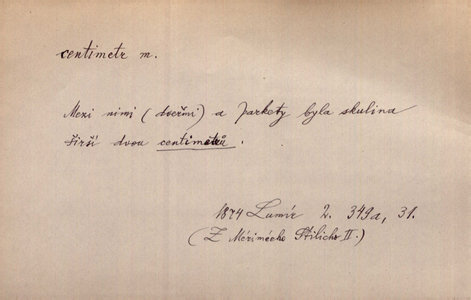 centimetr m.
Mezi nimi (dveřmi) a parkety byla skulina
širší dvou centimetrů.
1874 Lumír 2. 349a, 31.
(Z Mériméeho Stilichr II.)